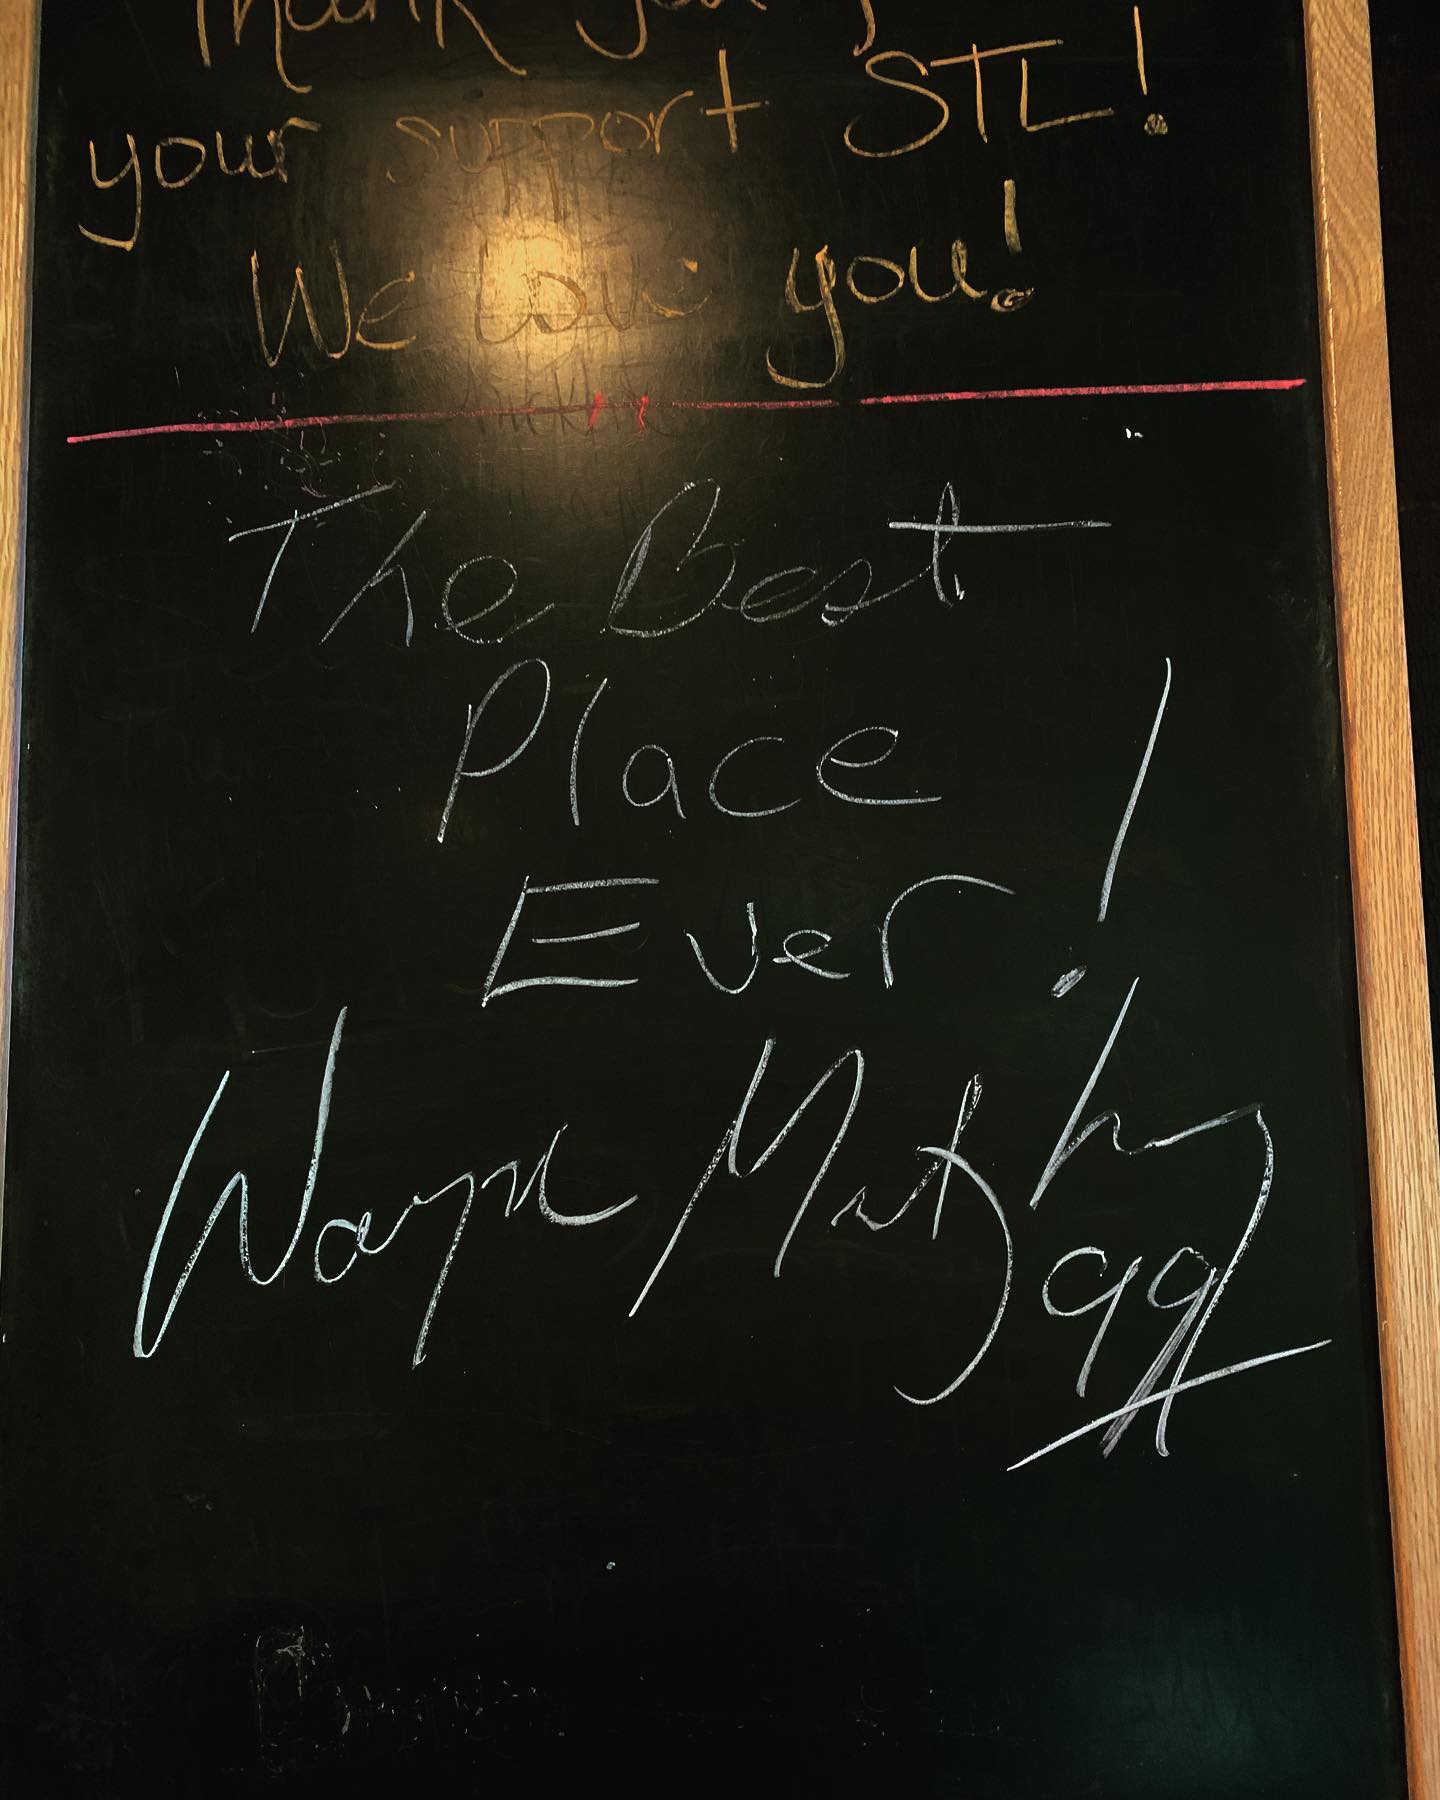 Thank you
your support STL!
We love you!
The Best
Place
Ever!
Wayne
99